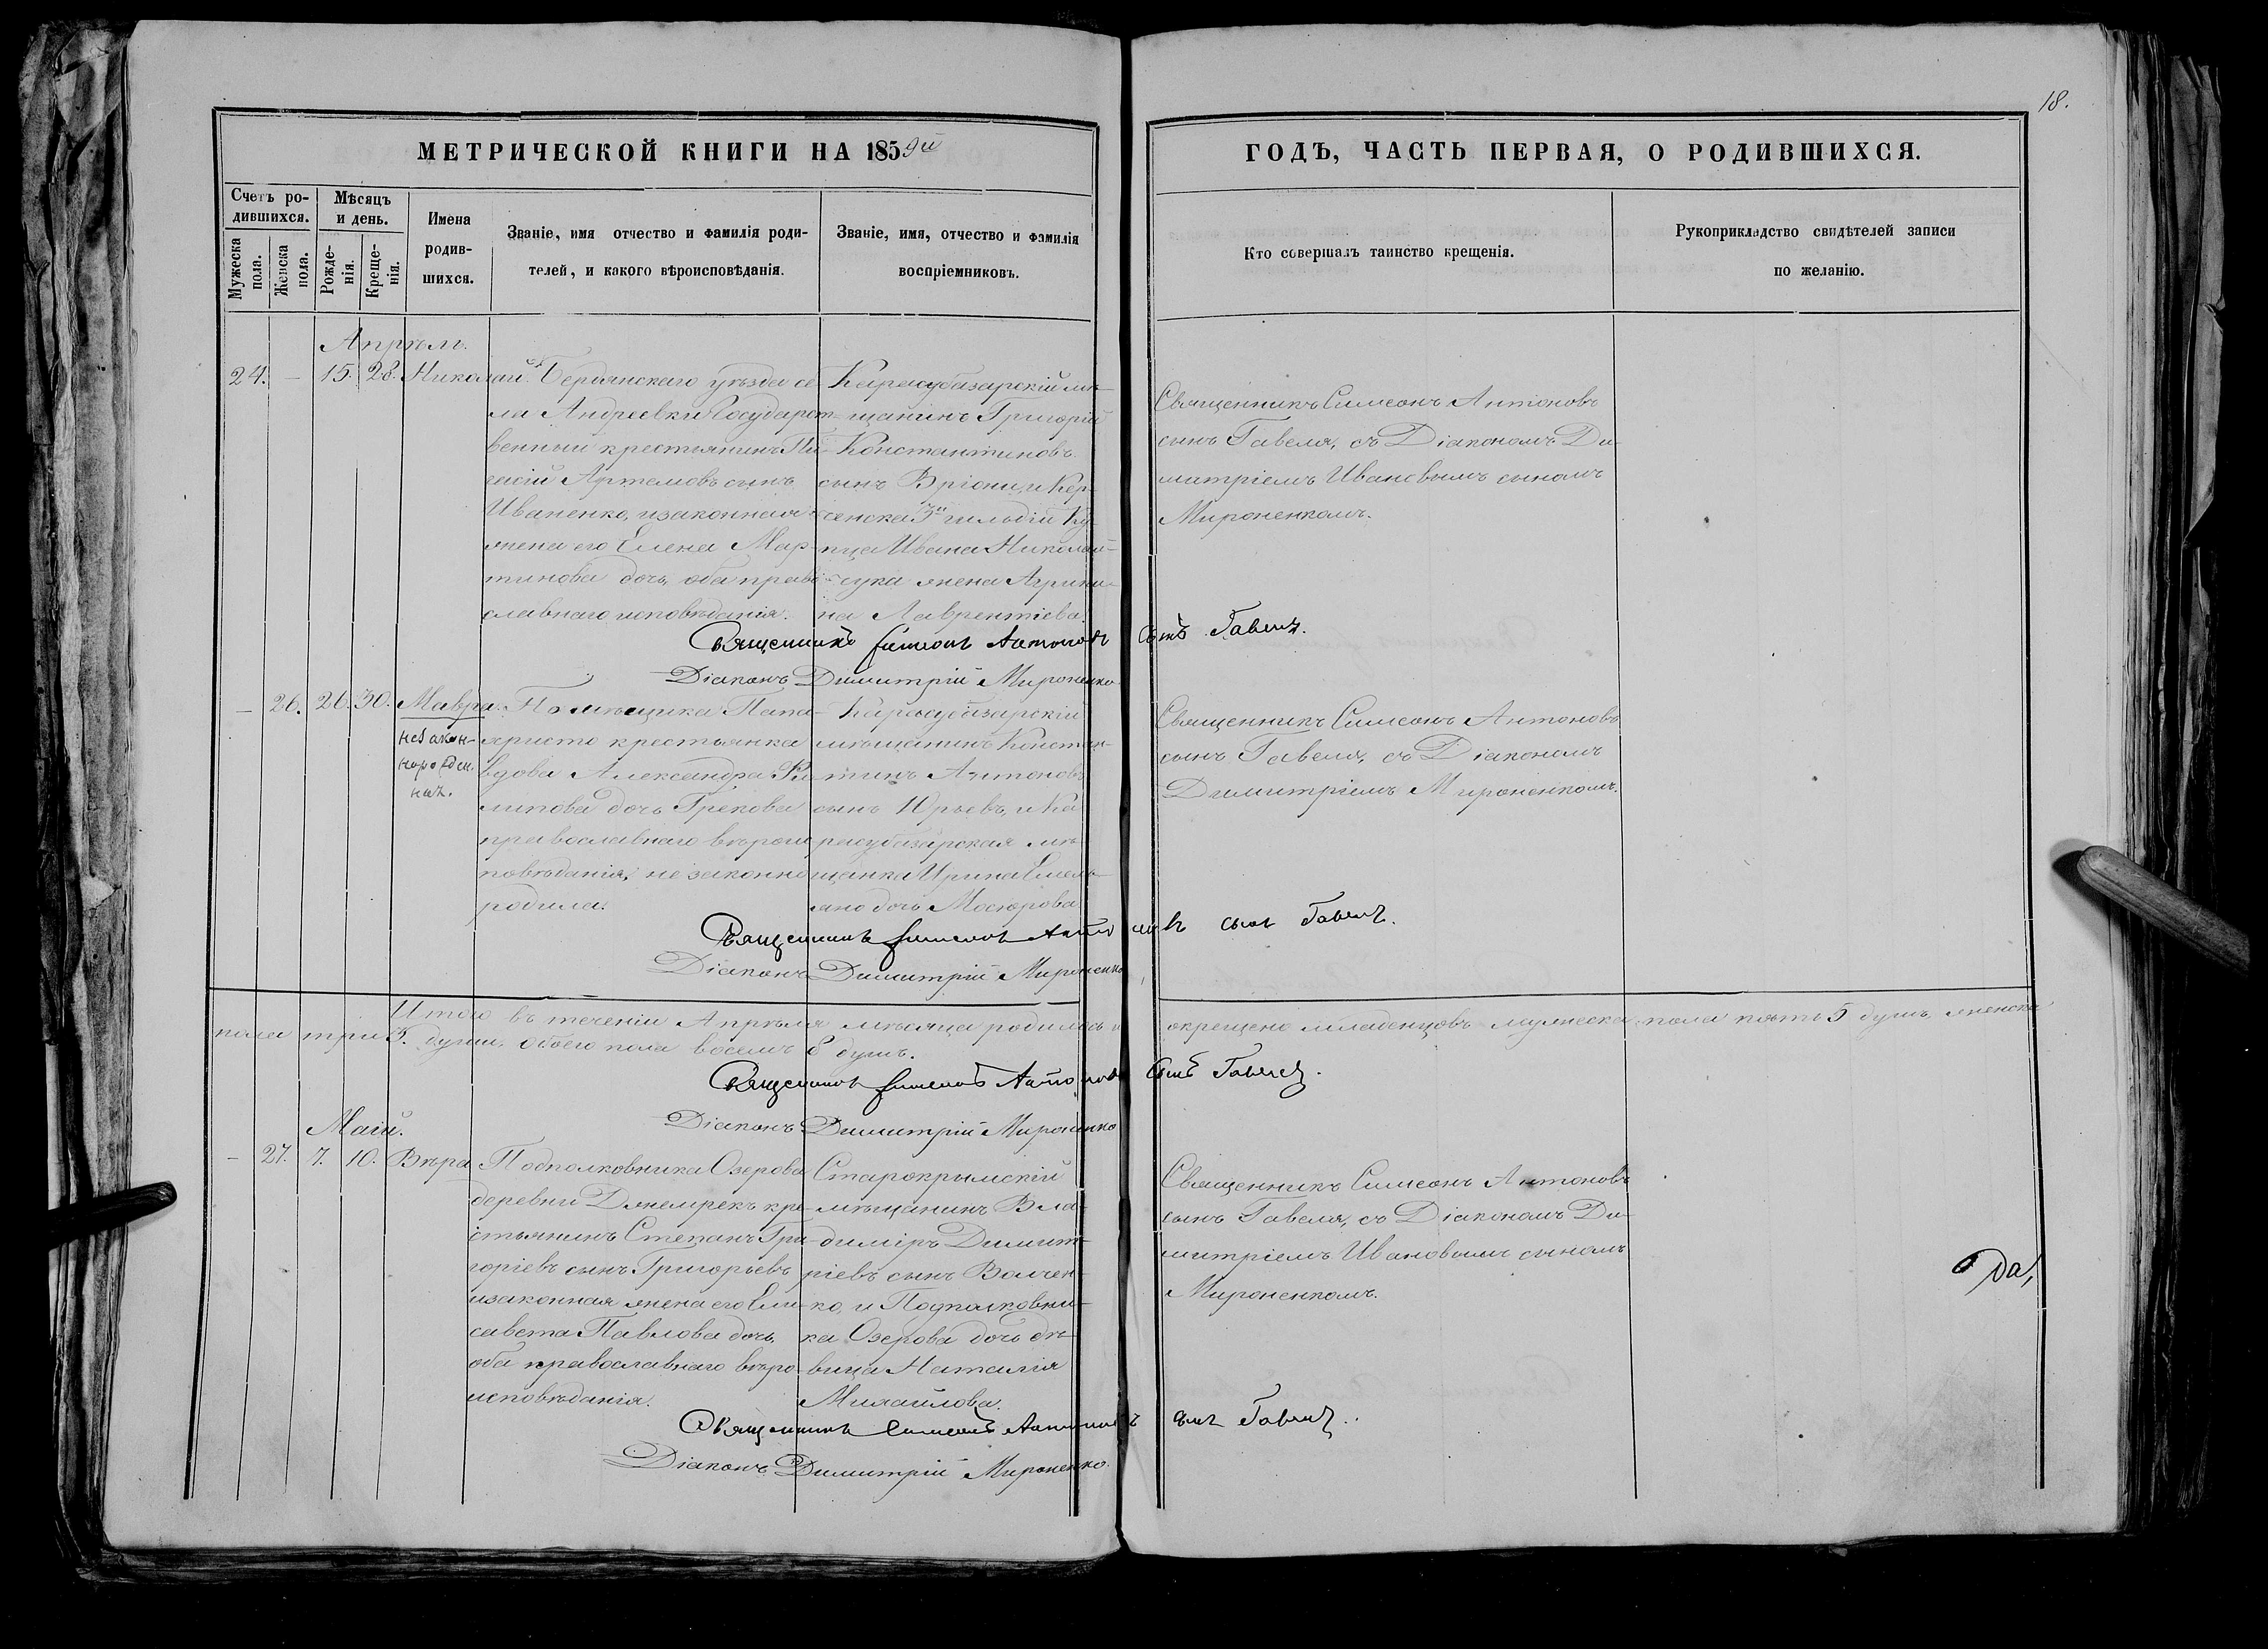 18.
МЕТРИЧЕСКОЙ КНИГИ НА 1859й
ГОДЪ, ЧАСТЬ ПЕРВАЯ, О РОДИВШИХСЯ.
Счетъ ро-
дившихся.
Мужеска пола.
Женска пола.
Мѣсяцъ
и день.
Рожде-
нія.
Креще-
нія.
Имена
родив-
шихся.
Званіе, имя отчество и фамилія роди-
телей, и какого вѣроисповѣданія.
Званіе, имя, отчество и фамилія
воспріемниковъ.
Кто совершалъ таинство крещенія.
Рукоприкладство свидѣтелей записи
по желанію.
Апрѣль.
24. – 15. 28. Николай.
Бердянскаго уѣзда се
ла Андреевки Государст-
венный крестьянинъ
Артемовъ сынъ
Иваненко, и законная
жена его Елена Мар-
тинова дочь, оба право-
славнаго исповѣданія.
Карасубазарскій мѣ-
щанинъ Григорій
Константиновъ
сынъ Вріони, и
3й гильдіи Ку
пца Ивана Николай-
чука жена Агрипи-
на Лаврентіева.
Священникъ Симеонъ Антоновъ
сынъ Гавеля, съ Діакономъ Ди-
митріемъ Ивановымъ сыномъ
Мироненкомъ.
Священникъ Симеонъ Антоновъ сынъ Гавеля.
Діаконъ Димитрій Мироненко
– 26. 26. 30. Мавра.
незакон-
норожден-
ная.
Помѣщика Папа-
христо крестьянка
вдова Александра Фи-
липова дочь Грекова
православнаго вѣроис
повѣданія, не законно
родила.
Карасубазарскій
мѣщанинъ Констан-
тинъ Антоновъ
сынъ Юрьевъ, и Ка
расубазарская мѣ-
щанка Ирина Емель-
яно дочь
Священникъ Симеонъ Антоновъ
сынъ Гавеля, съ Діакономъ
Димитріемъ Мироненкомъ.
Священникъ Симеонъ Антоновъ сынъ Гавеля.
Діаконъ Димитрій Мироненко
Итого въ теченіи Апрѣля мѣсяца родилось и окрещено младенцовъ мужеска пола пять 5 душъ, женска
пола три 3. души, обоего пола восемь 8 душъ.
Священникъ Симеонъ Антоновъ сынъ Гавеля.
Діаконъ Димитрій Мироненко
Маій.
– 27. 7. 10. Вѣра
Подполковника Озерова
деревни Джемрекъ кре-
стьянинъ Степанъ Гри-
горіевъ сынъ Григорьевъ
и законная жена его Ели-
савета Павлова дочь,
оба православнаго вѣро-
исповѣданія.
Старокрымскій
мѣщанинъ Вла-
диміръ Димит-
ріевъ сынъ Волчен-
ко, и Подполковни-
ка Озерова дочь дѣ-
вица Наталія
Михайлова.
Священникъ Симеонъ Антоновъ
сынъ Гавеля, съ Діакономъ Ди-
митріемъ Ивановымъ сыномъ
Мироненкомъ.
да,
Священникъ Симеонъ Антоновъ сынъ Гавеля.
Діаконъ Димитрій Мироненко.